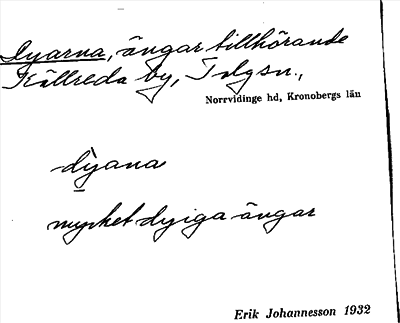 Dyarna, ängar tillhörande
Källreda by, Tolgsn.,
Norrvidinge hd, Kronobergs län
dy̖ana
mycket dyiga ängar
Erik Johannesson 1932